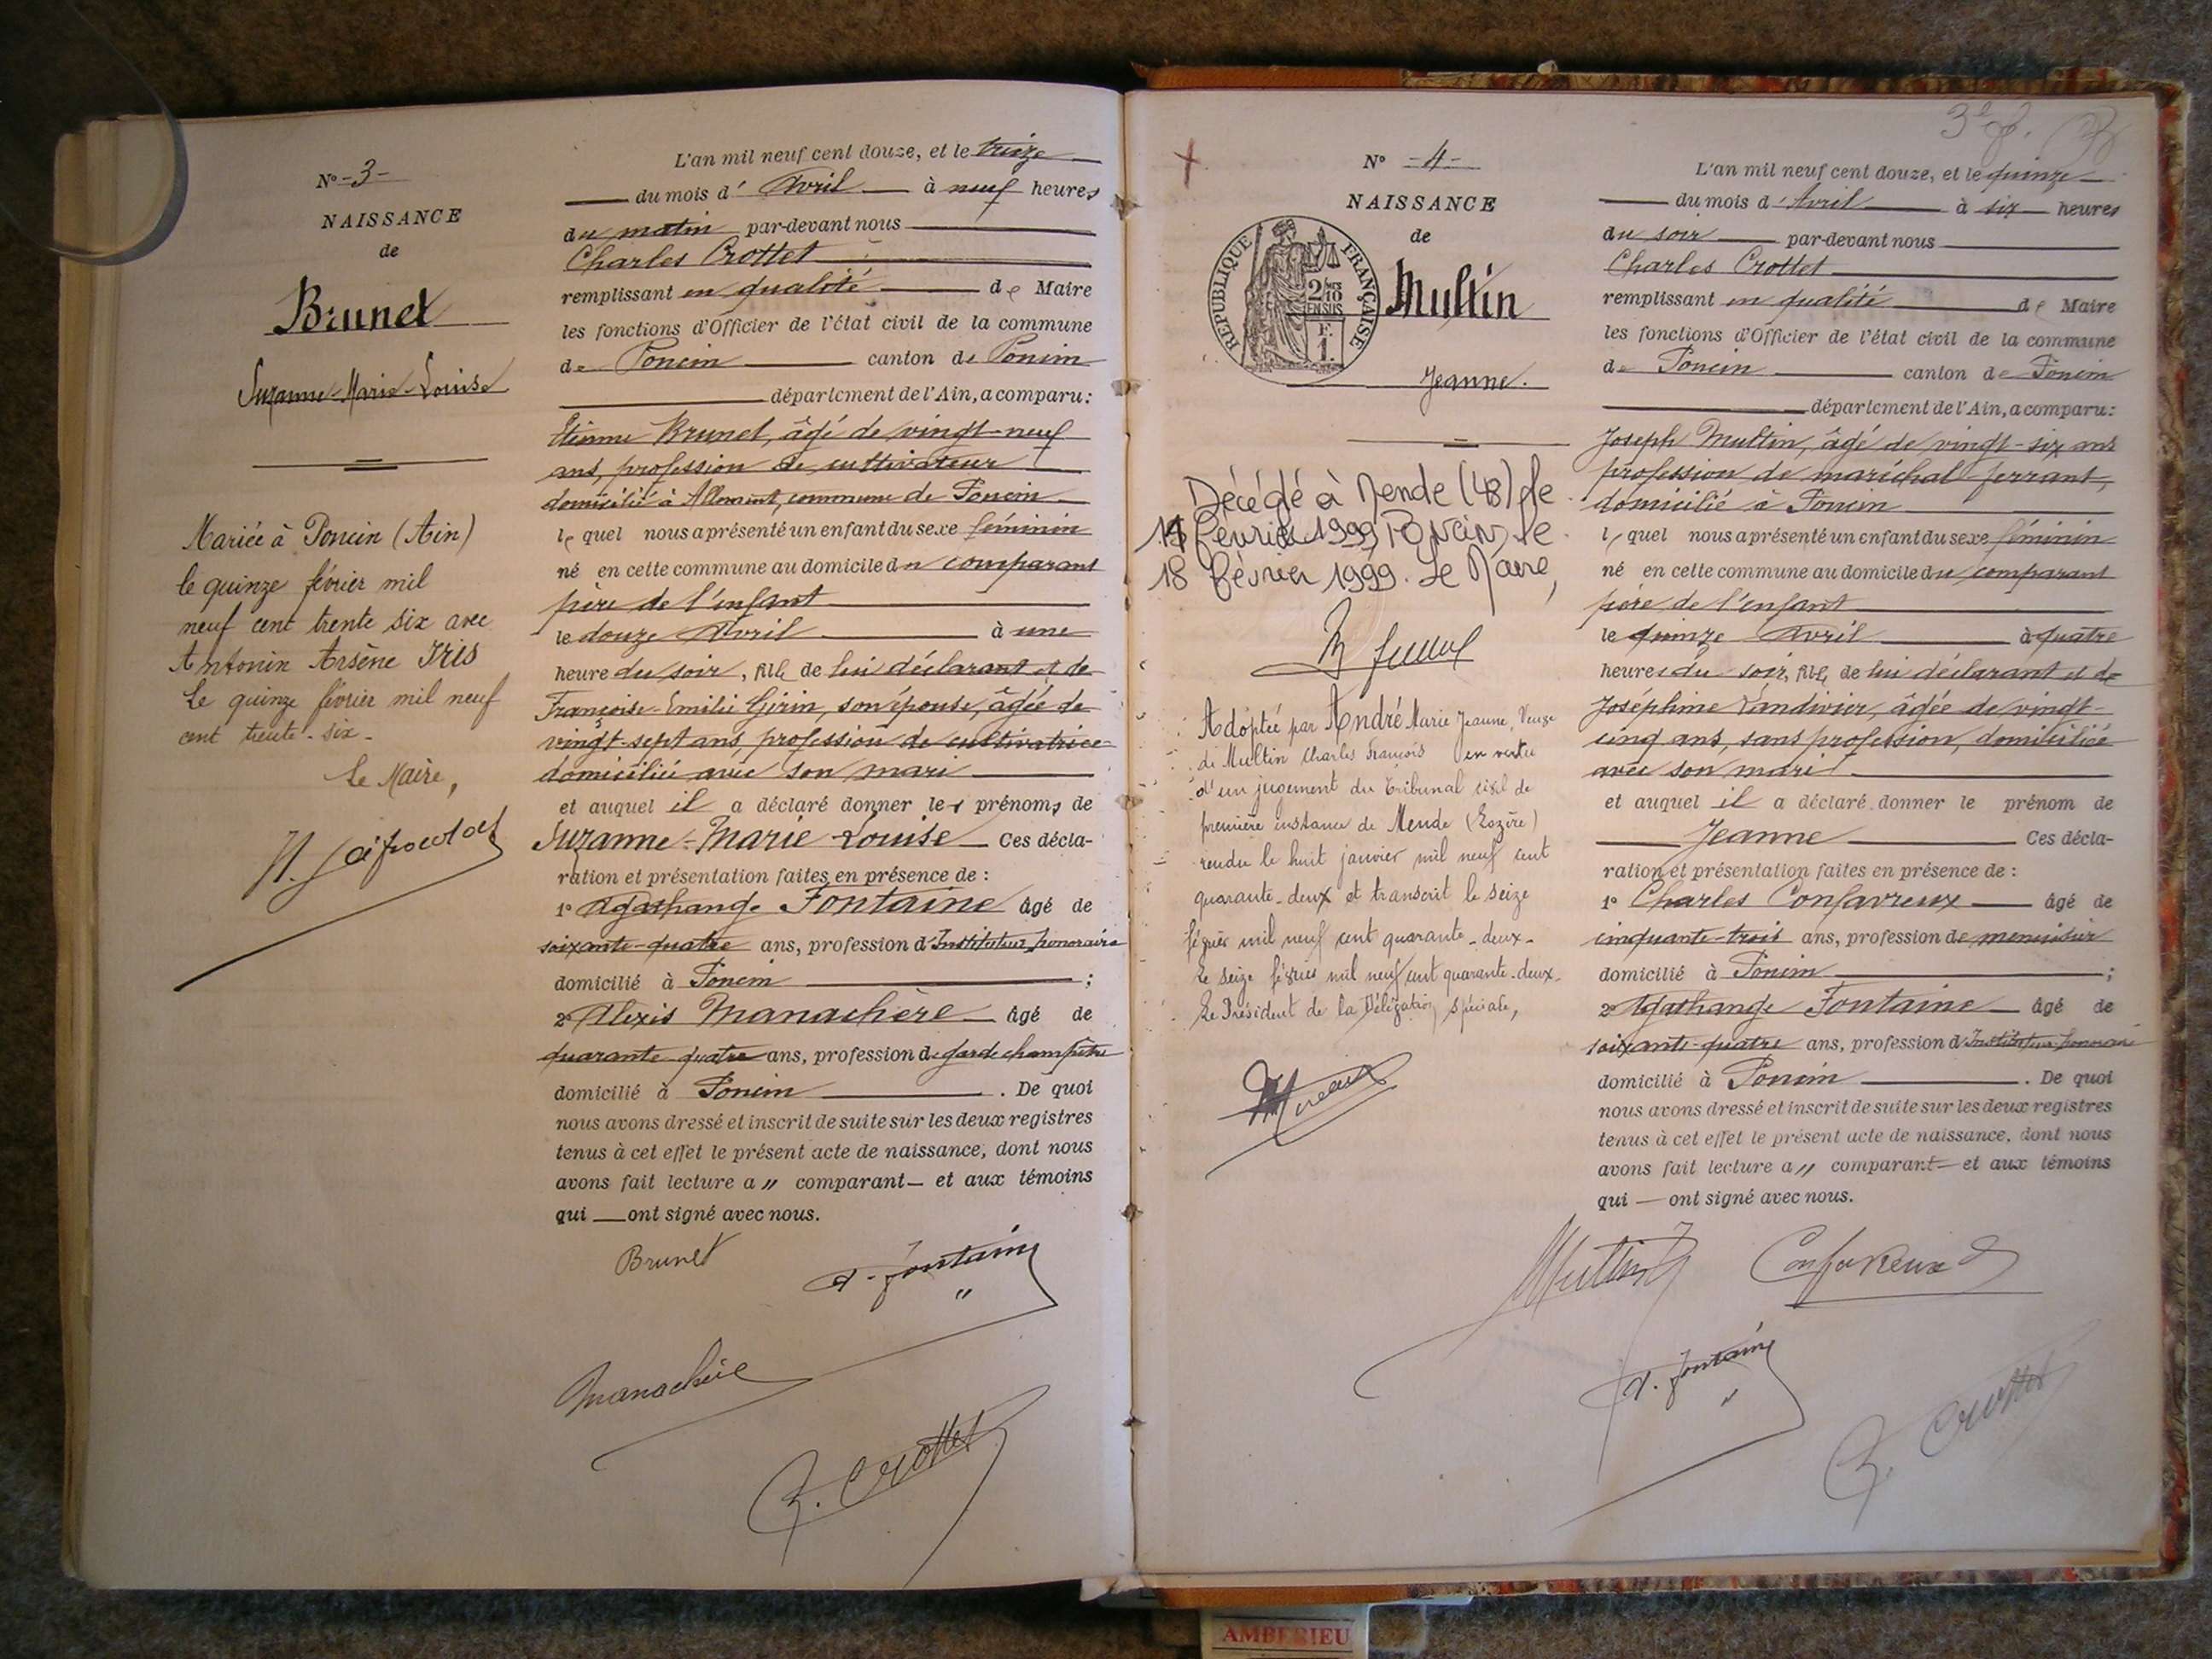 N° -3-
NAISSANCE
de
Brunet
Suzanne-Marie-Louise
Mariée à Poncin (Ain)
le quinze février mil
neuf cent trente six avec
Antonin Arsène IRIS
Le quinze février mil neuf
cent trente-six-
Le Maire,
L'an mil neuf cent douze, et le treize
du mois d' Avril à neuf heures
du matin par-devant nous
Charles Crottet
remplissant en qualité de Maire
les fonctions d'Officier de l'état civil de la commune
de Poncin canton de Poncin
département de l'Ain, a comparu:
Etienne Brunet, âgé de vingt-neuf
ans, profession de cultivateur
domicilié à Allement, commune de Poncin
lequel nous a présenté un enfant du sexe féminin
né en cette commune au domicile du comparant
père de l'enfant
le douze Avril à une
heure du soir, fille de lui déclarant et de
Françoise-Emilie Girin, son épouse, âgée de
vingt-sept ans, profession de cultivatrice
domiciliée avec son mari
et auquel il a déclaré donner les prénoms de
Suzanne-Marie-Louise Ces décla-
ration et présentation faites en présence de :
1° Agathange Fontaine âgé de
soixante-quatre ans, profession d'Instituteur honoraire
domicilié à Poncin ;
2° Alexis Manachère âgé de
quarante-quatre ans, profession de garde champêtre
domicilié à Poncin . De quoi
nous avons dressé et inscrit de suite sur les deux registres
tenus à cet effet le présent acte de naissance, dont nous
avons fait lecture a " comparant— et aux témoins
qui — ont signé avec nous.
Brunet
A. Fontaine
Manachère
C. Crottet
N° -4-
NAISSANCE
de
RÉPUBLIQUE FRANÇAISE
2/10
EN SUS
F.
1.
Multin
Jeanne.
Décédé à Mende (48) le
14 février 1999 Poncin, le
18 février 1999. Le Maire,
Adoptée par André Marie Jeanne, Veuve
de Multin Charles François en vertu
d'un jugement du Tribunal civil de
première instance de Mende (Lozère)
rendu le huit janvier mil neuf cent
quarante-deux et transcrit le seize
février mil neuf cent quarante-deux-
Le seize février mil neuf cent quarante-deux-
Le Président de la Délégation spéciale,
L'an mil neuf cent douze, et le quinze
du mois d'Avril à six heures
du soir par-devant nous
Charles Crottet
remplissant en qualité de Maire
les fonctions d'Officier de l'état civil de la commune
de Poncin canton de Poncin
département de l'Ain, a comparu:
Joseph Multin, âgé de vingt-six ans
profession de maréchal-ferrant,
domicilié à Poncin
lequel nous a présenté un enfant du sexe féminin
né en cette commune au domicile du comparant
père de l'enfant
le quinze Avril à quatre
heures du soir, fille de lui déclarant et de
Joséphine Vandivier, âgée de vingt-
cinq ans, sans profession, domiciliée
avec son mari
et auquel il a déclaré donner le prénom de
Jeanne Ces décla-
ration et présentation faites en présence de :
1° Charles Confavreux âgé de
cinquante-trois ans, profession de menuisier
domicilié à Poncin ;
2° Agathange Fontaine âgé de
soixante-quatre ans, profession d'Instituteur honoraire
domicilié à Poncin . De quoi
nous avons dressé et inscrit de suite sur les deux registres
tenus à cet effet le présent acte de naissance, dont nous
avons fait lecture a " comparant— et aux témoins
qui — ont signé avec nous.
Multin J
Confavreux
A. Fontaine
C. Crottet
AMBERIEU